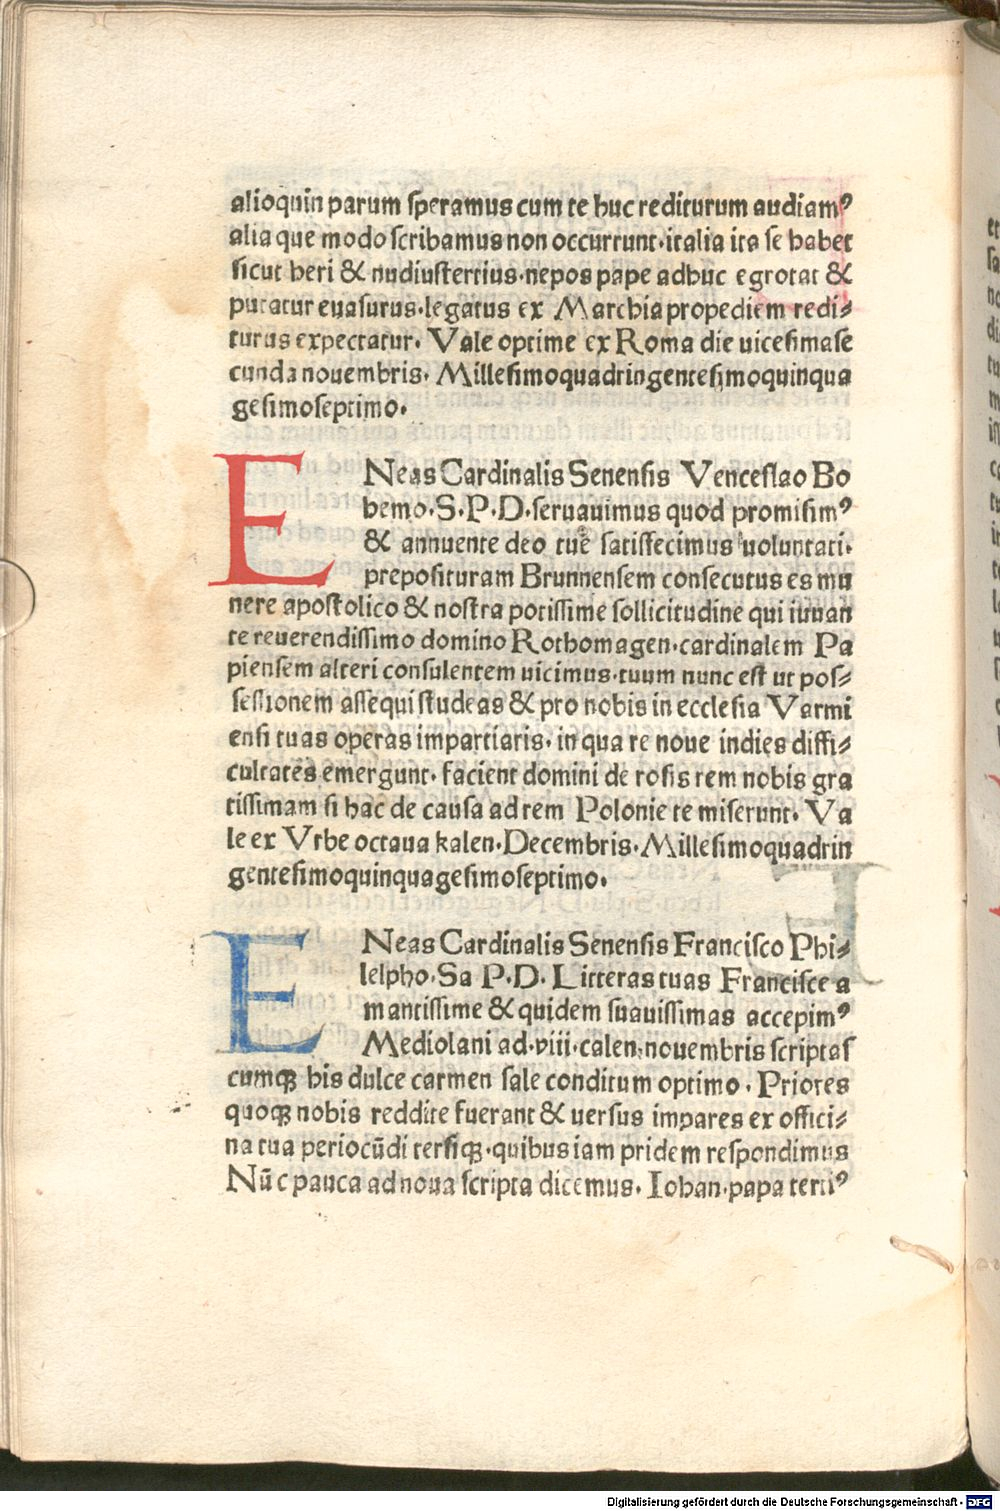 alioquin parum ſperamus cum te huc rediturum audiamꝰ
alia que modo ſcribamus non occurrunt·italia ita ſe habet
ſicut heri & nudiuſtertius·nepos pape adhuc egrotat &
putatur euaſurus·legatus ex Marchia propediem redi⸗
turus expectatur· Vale optime ex Roma die uiceſimaſe
cunda nouembris· Milleſimoquadringenteſimoquinqua
geſimoſeptimo·
ENeas Cardinalis Senenſis Venceſlao Bo
hemo·S·P·D·ſeruauimus quod promiſimꝰ
& annuente deo tue ſatiſfecimus uoluntati·
prepoſituram Brunnenſem conſecutus es mu
nere apoſtolico & noſtra potiſſime ſollicitudine qui iuuan
te reuerendiſſimo domino Rothomagen·cardinalem Pa
pienſem alteri conſulentem uicimus·tuum nunc eſt ut poſ⸗
ſeſſionem aſſequi ſtudeas & pro nobis in eccleſia Varmi
enſi tuas operas impartiaris· in qua re noue indies diffi⸗
cultates emergunt· facient domini de roſis rem nobis gra
tiſſimam ſi hac de cauſa ad rem Polonie te miſerunt· Va
le ex Vrbe octaua kalen·Decembris·Milleſimoquadrin
genteſimoquinquageſimoſeptimo·
ENeas Cardinalis Senenſis Franciſco Phi⸗
lelpho·Sa P·D· Litteras tuas Franciſce a
mantiſſime & quidem ſuauiſſimas accepimꝰ
Mediolani ad·viii·calen·nouembris ſcriptaſ
cumqꝫ his dulce carmen ſale conditum optimo· Priores
quoqꝫ nobis reddite fuerant & uerſus impares ex offici⸗
na tua periocūdi terſiqꝫ·quibus iam pridem reſpondimus
Nūc pauca ad noua ſcripta dicemus· Iohan·papa tertiꝰ
Digitalisierung gefördert durch die Deutsche Forschungsgemeinschaft - DFG